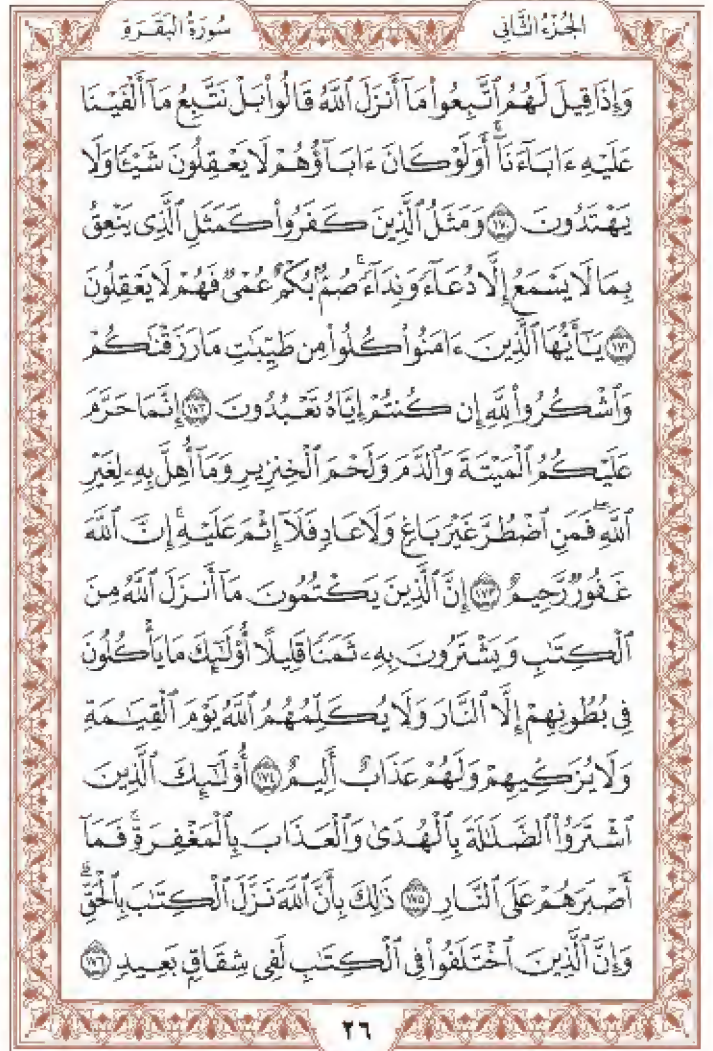 الجُزْءُ الثَّانِي سُورَةُ البَقَرَةِ
وَإِذَا قِيلَ لَهُمُ ٱتَّبِعُوا۟ مَآ أَنزَلَ ٱللَّهُ قَالُوا۟ بَلْ نَتَّبِعُ مَآ أَلْفَيْنَا
عَلَيْهِ ءَابَآءَنَآ ۗ أَوَلَوْ كَانَ ءَابَآؤُهُمْ لَا يَعْقِلُونَ شَيْـًٔا وَلَا
يَهْتَدُونَ ١٧٠ وَمَثَلُ ٱلَّذِينَ كَفَرُوا۟ كَمَثَلِ ٱلَّذِى يَنْعِقُ
بِمَا لَا يَسْمَعُ إِلَّا دُعَآءً وَنِدَآءً ۚ صُمٌّۢ بُكْمٌ عُمْىٌ فَهُمْ لَا يَعْقِلُونَ
١٧١ يَـٰٓأَيُّهَا ٱلَّذِينَ ءَامَنُوا۟ كُلُوا۟ مِن طَيِّبَـٰتِ مَا رَزَقْنَـٰكُمْ
وَٱشْكُرُوا۟ لِلَّهِ إِن كُنتُمْ إِيَّاهُ تَعْبُدُونَ ١٧٢ إِنَّمَا حَرَّمَ
عَلَيْكُمُ ٱلْمَيْتَةَ وَٱلدَّمَ وَلَحْمَ ٱلْخِنزِيرِ وَمَآ أُهِلَّ بِهِۦ لِغَيْرِ
ٱللَّهِ ۖ فَمَنِ ٱضْطُرَّ غَيْرَ بَاغٍ وَلَا عَادٍ فَلَآ إِثْمَ عَلَيْهِ ۚ إِنَّ ٱللَّهَ
غَفُورٌ رَّحِيمٌ ١٧٣ إِنَّ ٱلَّذِينَ يَكْتُمُونَ مَآ أَنزَلَ ٱللَّهُ مِنَ
ٱلْكِتَـٰبِ وَيَشْتَرُونَ بِهِۦ ثَمَنًا قَلِيلًا أُو۟لَـٰٓئِكَ مَا يَأْكُلُونَ
فِى بُطُونِهِمْ إِلَّا ٱلنَّارَ وَلَا يُكَلِّمُهُمُ ٱللَّهُ يَوْمَ ٱلْقِيَـٰمَةِ
وَلَا يُزَكِّيهِمْ وَلَهُمْ عَذَابٌ أَلِيمٌ ١٧٤ أُو۟لَـٰٓئِكَ ٱلَّذِينَ
ٱشْتَرَوُا۟ ٱلضَّلَـٰلَةَ بِٱلْهُدَىٰ وَٱلْعَذَابَ بِٱلْمَغْفِرَةِ ۚ فَمَآ
أَصْبَرَهُمْ عَلَى ٱلنَّارِ ١٧٥ ذَٰلِكَ بِأَنَّ ٱللَّهَ نَزَّلَ ٱلْكِتَـٰبَ بِٱلْحَقِّ ۗ
وَإِنَّ ٱلَّذِينَ ٱخْتَلَفُوا۟ فِى ٱلْكِتَـٰبِ لَفِى شِقَاقٍۭ بَعِيدٍ ١٧٦
٢٦